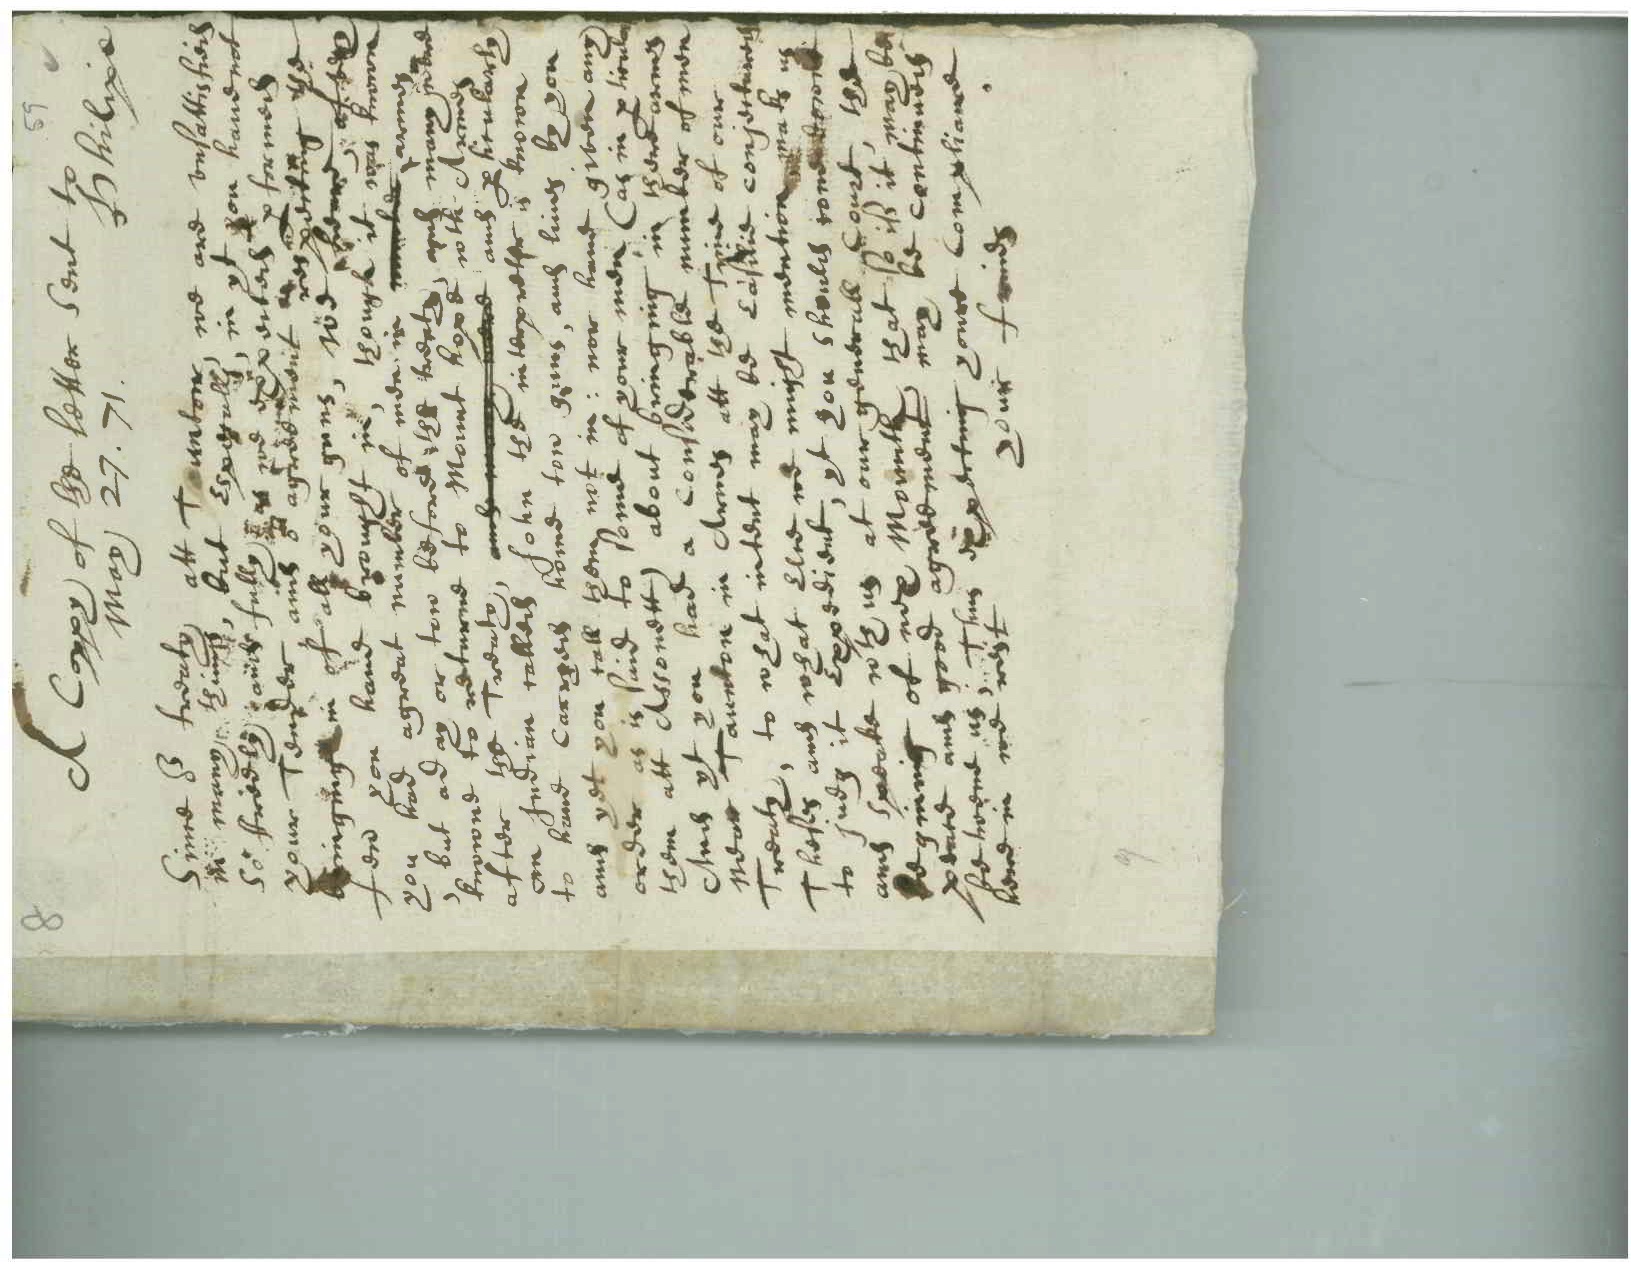 8
59
A Coppy of the letter Sent to
Philipe
May 27. 71.
Since ye treaty att Taunton, we are unsattisfied
in many things, but Especyally, in yt you have not
so freely and fully as we expected performed
your Tender and agreement respecting the
bringing in of all your guns, few
you have brought in, though it was known
you had agreat number of men in armes
but a day or tow before the treaty, and many more
knowne to returne to Mount hope with Armes
after the Treaty, and perticularly
one Indian called John the interpreter is known
to have Carryed home tow guns, and lines by you
and yet you call them not in: nor have given any
order as is said to some of your men (as in perticuler
them att Assonett) about bringing in there armes
And yt you had a considerable number of men
near Taunton in Armes att the time of our
Treaty, to what intent may be Easilie conjectured
Theses and what else we might mention makes us
to judg it Expedient, yt you should come downe
and speake with us at our generall Court, the
begining of next Month, that so iff it may be
peace and good agreement may be continued
betweene us, Thus expecting your complyance
herein we rest
your frinds